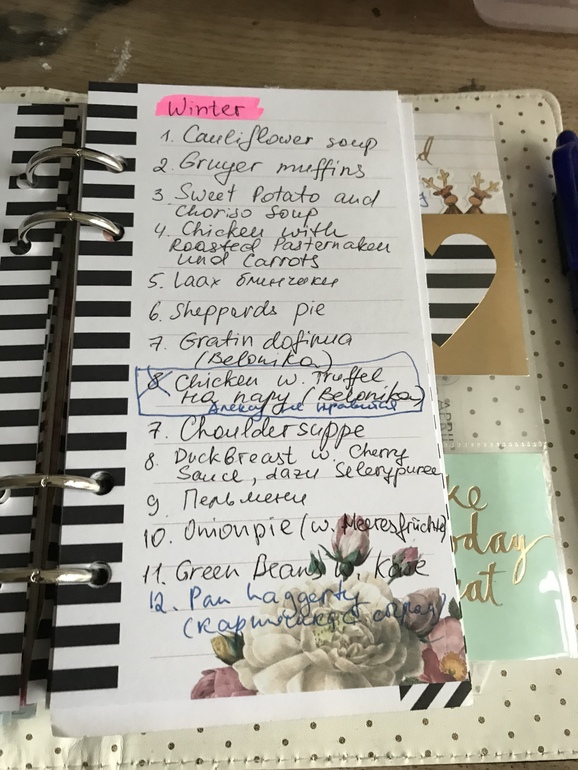 Winter
1. Cauliflower soup
2. Gruyer muffins
3. Sweet Potato and
Choriso Soup
4. Chicken with
Roasted Pasternaken
und Carrots
5. Laax блинчики
6. Shepperds pie
7. Gratin dofinua
(Belonika)
8 Chicken w. Truffel
на пару (Belonika)
не нравится
7. Chouldersuppe
8. Duckbreast w. Cherry
Sauce, dazu Selerypuree
9. Пельмени
10. Onionpie (w. Meeresfrüchte)
11. Green Beans w. Käse
12. Pan haggerty
ke
oday
eat